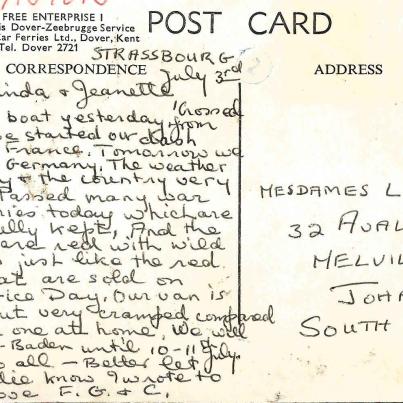 FREE ENTERPRISE I
is Dover-Zeebrugge Service
Car Ferries Ltd., Dover, Kent
Tel. Dover 2721
POST CARD
STRASSBOURG
July 3rd
CORRESPONDENCE
ADDRESS
inda & Jeanette
Crossed
boat yesterday from
e started our dash
France. Tomorrow we
Germany. The weather
y & the country very
Passed many war
ries today which are
ully kept, And the
are red with wild
s just like the red
at are sold on
ice Day. Our van is
ut very cramped compared
one at home. We will
-Baden until 10-11th July.
o all - Better let
die know I wrote to
ove F. G. & C.
MESDAMES L
32 AVAL
MELVIL
JOHA
SOUTH